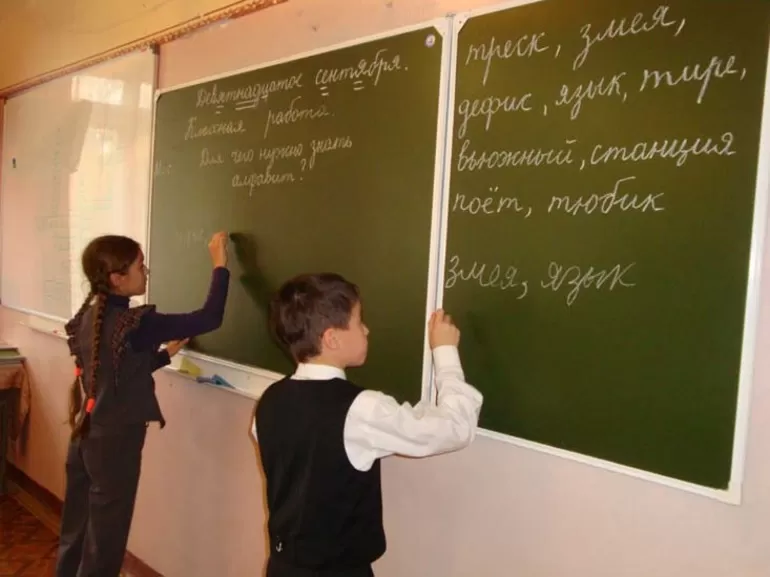 Девятнадцатое сентября.
Классная работа.
Для чего нужно знать
алфавит?
треск, змея,
дефис, язык, тире,
вьюжный, станция
поёт, тюбик
змея, язык